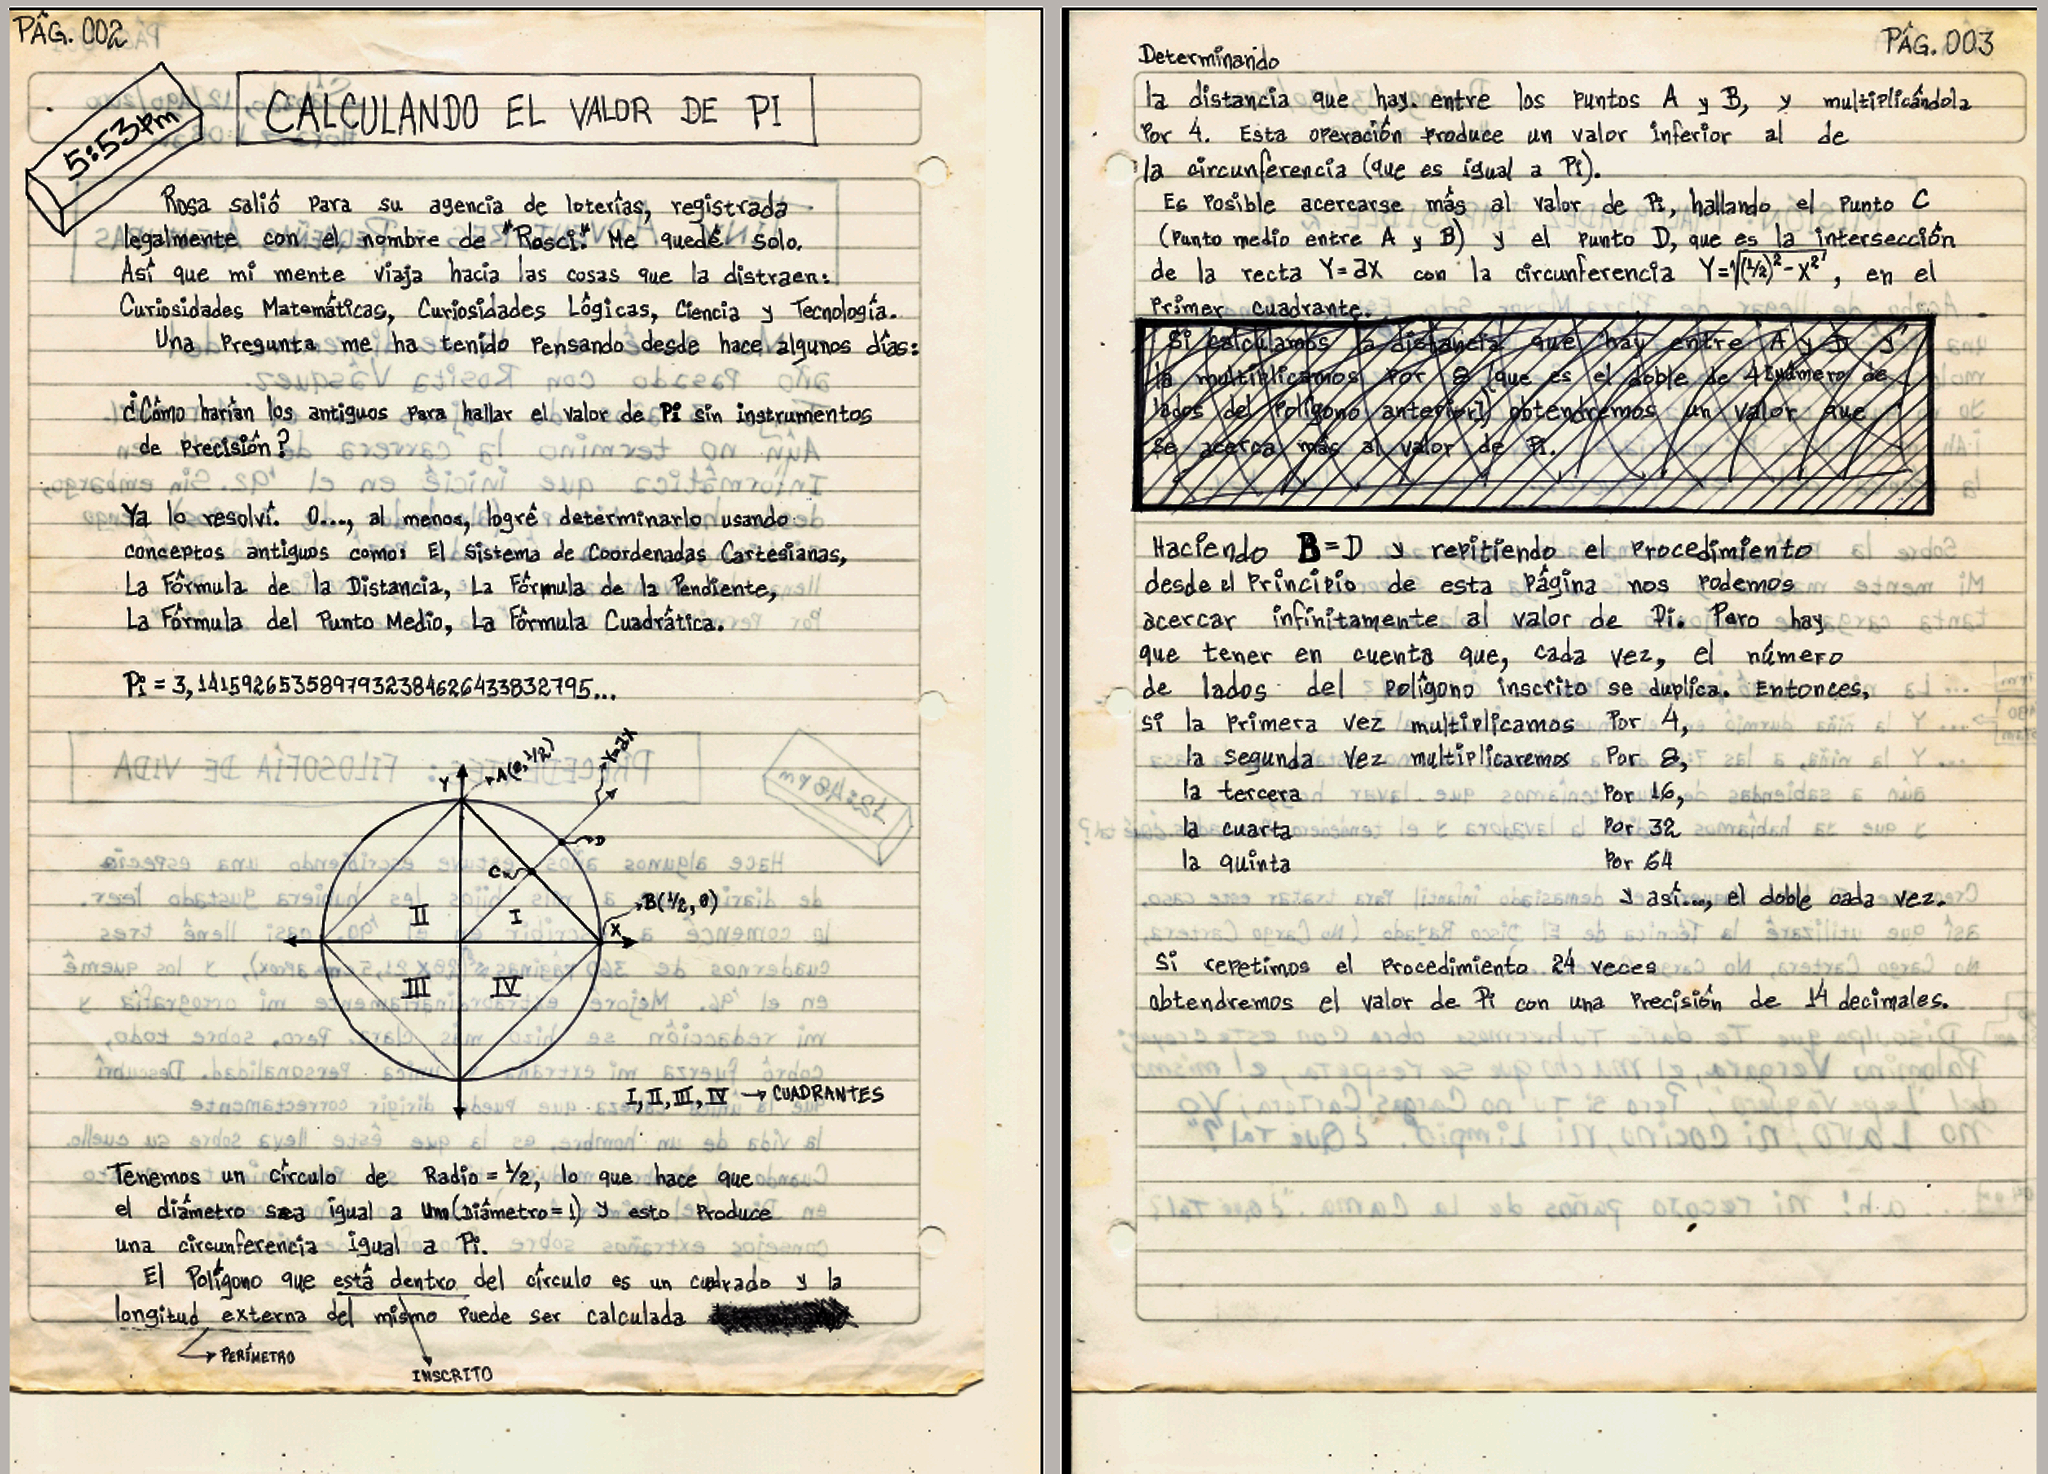 PÁG. 002
5:53pm
CALCULANDO EL VALOR DE PI
Rosa salió para su agencia de loterías, registrada
legalmente con el nombre de "Rosci". Me quedé solo.
Así que mi mente viaja hacia las cosas que la distraen:
Curiosidades Matemáticas, Curiosidades Lógicas, Ciencia y Tecnología.
Una Pregunta me ha tenido pensando desde hace algunos días:
¿Cómo harían los antiguos para hallar el valor de Pi sin instrumentos
de precisión?
Ya lo resolví. O..., al menos, logré determinarlo usando
conceptos antiguos como: El Sistema de Coordenadas Cartesianas,
La Fórmula de la Distancia, La Fórmula de la Pendiente,
La Fórmula del Punto Medio, La Fórmula Cuadrática.
Pi = 3,14159265358979323846264338327 95...
Y
A(0,1/2)
Y=2X
D
C
B(1/2,0)
X
II
I
III
IV
I, II, III, IV → CUADRANTES
Tenemos un círculo de Radio = 1/2, lo que hace que
el diámetro sea igual a Un (Diámetro = 1) y esto Produce
una circunferencia igual a Pi.
El Polígono que está dentro del círculo es un cuadrado y la
longitud externa del mismo puede ser calculada
PERÍMETRO
INSCRITO
PÁG. 003
Determinando
la distancia que hay entre los puntos A y B, y multiplicándola
Por 4. Esta operación produce un valor inferior al de
la circunferencia (que es igual a Pi).
Es Posible acercarse más al valor de Pi, hallando el Punto C
(Punto medio entre A y B) y el punto D, que es la intersección
de la recta Y=2X con la circunferencia Y=√(1/2)²-X², en el
Primer cuadrante.
Si calculamos la distancia que hay entre A y D y
la multiplicamos Por 8 (que es el doble de 4 [número de
lados del Polígono anterior]) obtendremos un valor que
se acerca más al valor de Pi.
Haciendo B=D y repitiendo el Procedimiento
desde el Principio de esta página nos podemos
acercar infinitamente al valor de Pi. Pero hay
que tener en cuenta que, cada vez, el número
de lados del polígono inscrito se duplica. Entonces,
si la Primera vez multiplicamos Por 4,
la segunda Vez multiplicaremos Por 8,
la tercera Por 16,
la cuarta Por 32
la quinta Por 64
y así..., el doble cada vez.
Si repetimos el Procedimiento 24 veces
obtendremos el valor de Pi con una Precisión de 14 decimales.